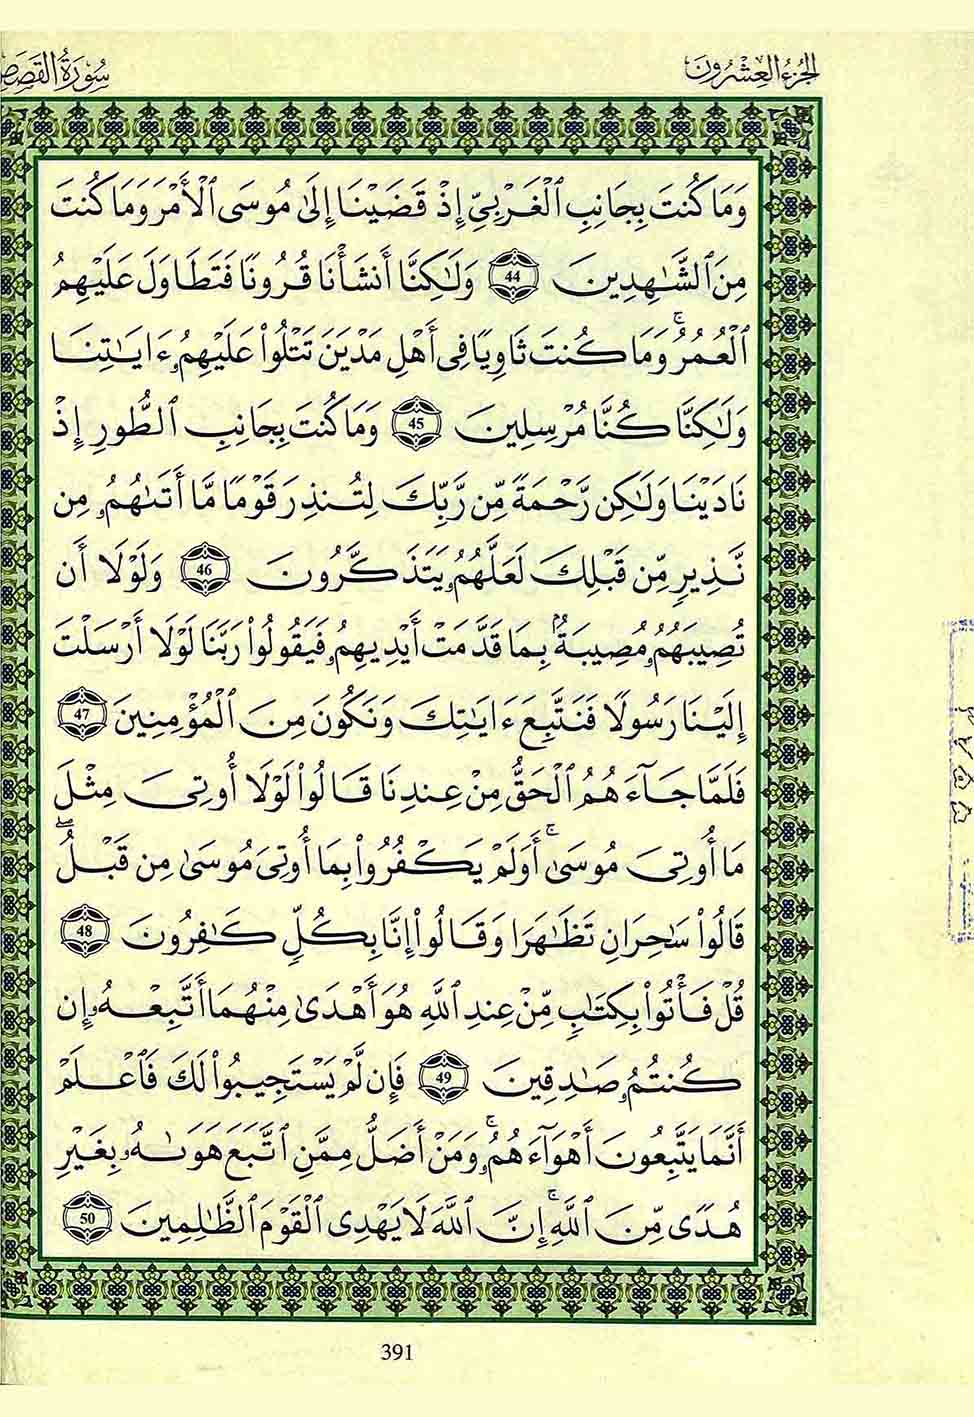 الجُزءُ العِشْرُونَ سُورَةُ القَصَصِ
وَمَا كُنتَ بِجَانِبِ ٱلْغَرْبِيِّ إِذْ قَضَيْنَا إِلَىٰ مُوسَى ٱلْأَمْرَ وَمَا كُنتَ
مِنَ ٱلشَّٰهِدِينَ 44 وَلَٰكِنَّا أَنشَأْنَا قُرُونًا فَتَطَاوَلَ عَلَيْهِمُ
ٱلْعُمُرُ ۚ وَمَا كُنتَ ثَاوِيًا فِى أَهْلِ مَدْيَنَ تَتْلُواْ عَلَيْهِمُۥ ءَايَٰتِنَا
وَلَٰكِنَّا كُنَّا مُرْسِلِينَ 45 وَمَا كُنتَ بِجَانِبِ ٱلطُّورِ إِذْ
نَادَيْنَا وَلَٰكِن رَّحْمَةً مِّن رَّبِّكَ لِتُنذِرَ قَوْمًا مَّا أَتَىٰهُمُۥ مِن
نَّذِيرٍ مِّن قَبْلِكَ لَعَلَّهُمُۥ يَتَذَكَّرُونَ 46 وَلَوْلَا أَن
تُصِيبَهُمُۥ مُصِيبَةُۢ بِمَا قَدَّمَتْ أَيْدِيهِمُۥ فَيَقُولُواْ رَبَّنَا لَوْلَا أَرْسَلْتَ
إِلَيْنَا رَسُولًا فَنَتَّبِعَ ءَايَٰتِكَ وَنَكُونَ مِنَ ٱلْمُؤْمِنِينَ 47
فَلَمَّا جَآءَهُمُ ٱلْحَقُّ مِنْ عِندِنَا قَالُواْ لَوْلَا أُوتِىَ مِثْلَ
مَا أُوتِىَ مُوسَىٰ ۚ أَوَلَمْ يَكْفُرُواْ بِمَا أُوتِىَ مُوسَىٰ مِن قَبْلُ ۖ
قَالُواْ سَٰحِرَانِ تَظَٰهَرَا وَقَالُواْ إِنَّا بِكُلٍّ كَٰفِرُونَ 48
قُلْ فَأْتُواْ بِكِتَٰبٍ مِّنْ عِندِ ٱللَّهِ هُوَ أَهْدَىٰ مِنْهُمَا أَتَّبِعْهُ إِن
كُنتُمُۥ صَٰدِقِينَ 49 فَإِن لَّمْ يَسْتَجِيبُواْ لَكَ فَٱعْلَمْ
أَنَّمَا يَتَّبِعُونَ أَهْوَآءَهُمُۥ ۚ وَمَنْ أَضَلُّ مِمَّنِ ٱتَّبَعَ هَوَىٰهُ بِغَيْرِ
هُدًى مِّنَ ٱللَّهِ ۚ إِنَّ ٱللَّهَ لَا يَهْدِى ٱلْقَوْمَ ٱلظَّٰلِمِينَ 50
391